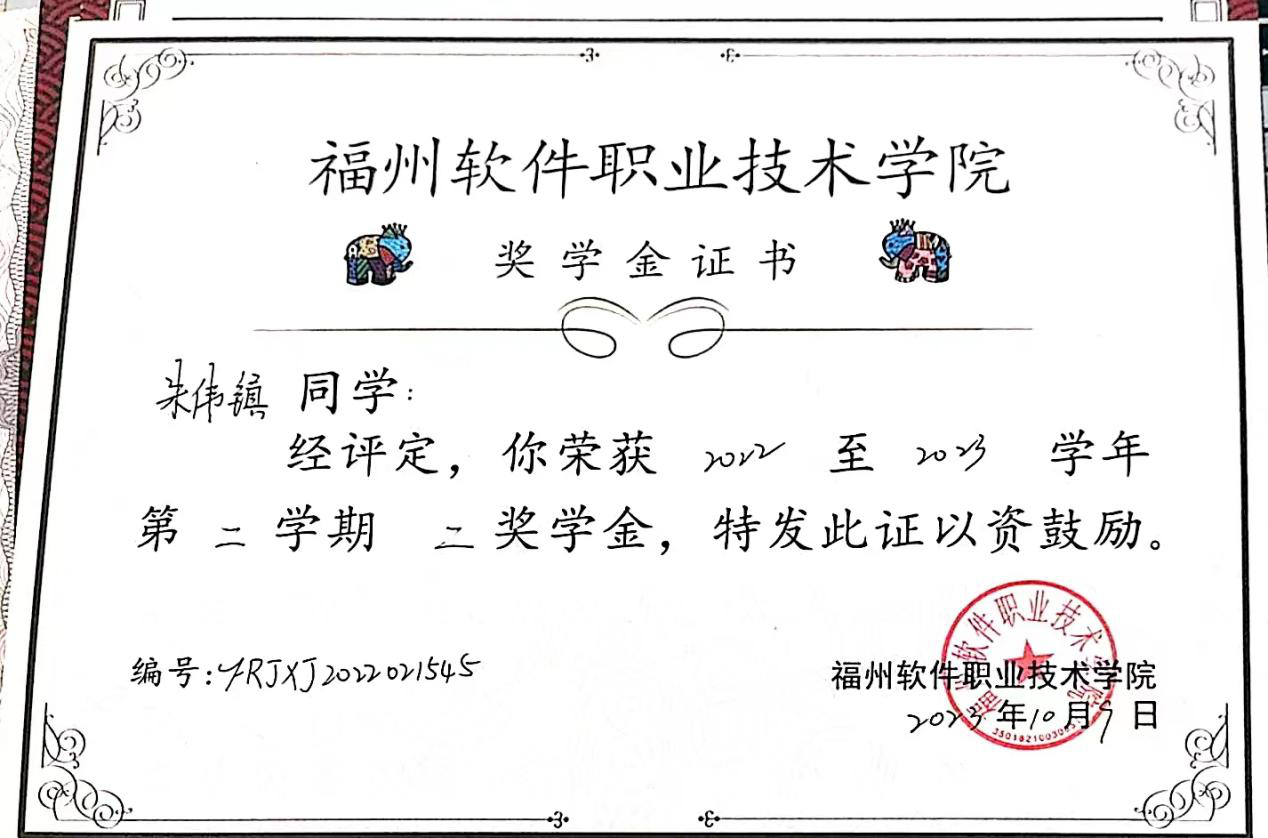 福州软件职业技术学院
奖学金证书
朱伟镇 同学：
经评定，你荣获 2022 至 2023 学年
第 二 学期 二 奖学金，特发此证以资鼓励。
编号：FRJXJ2022021545
福州软件职业技术学院
2023年10月9日
福州软件职业技术学院